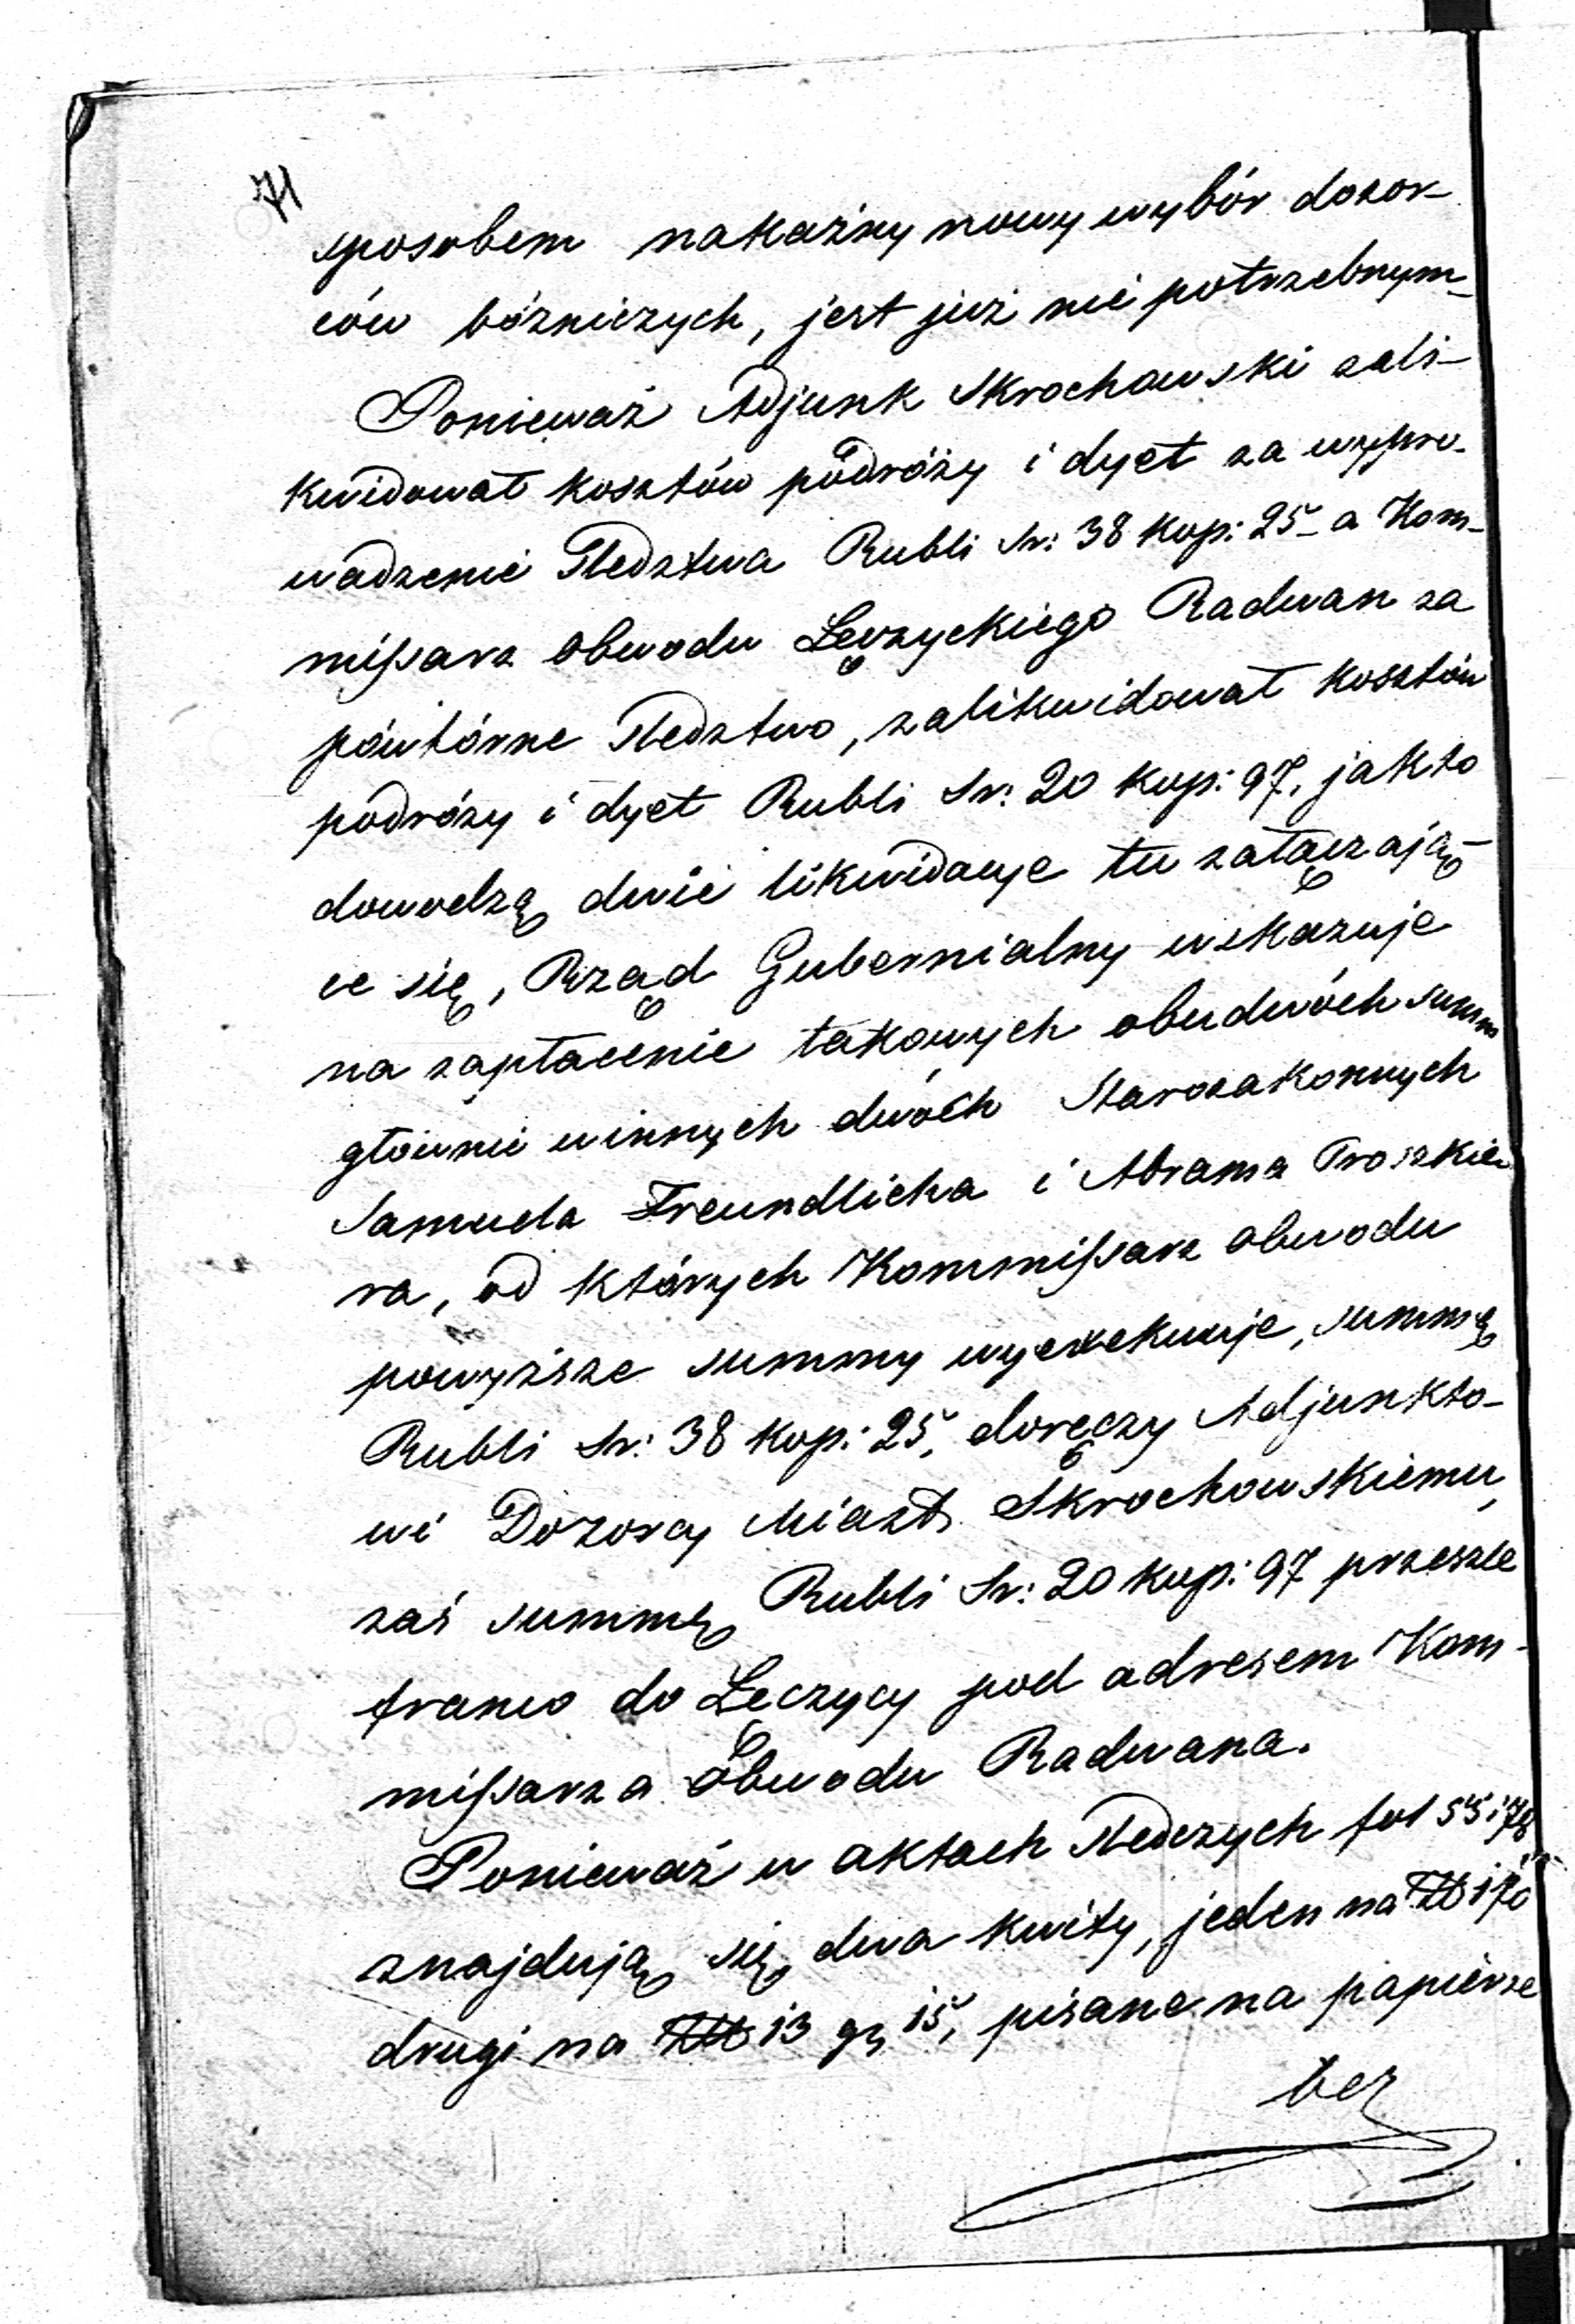 71
sposobem nakaźny nowy wybór dozor-
ców bóżniczych, jest już nie potrzebnym_
Ponieważ Adjunk Skrochowski zali-
kwidował kosztów podróży i dyet za wypro-
wadzenie Śledztwa Rubli Sr: 38 kop: 25_ a Kom-
missarz obwodu Łęczyckiego Radwan za
powtórne Śledztwo, zalikwidował kosztów
podróży i dyet Rubli Sr: 20 kop: 97, jak to
dowodzą dwie likwidacye tu załączają-
ce się, Rząd Gubernialny wskazuje
na zapłacenie takowych obudwóch summ
głównie winnych dwóch Starozakonnych
Samuela Freundlicha i Abrama Proszkie
ra, od których Kommissarz obwodu
powyższe summy wyexekwuje, summę
Rubli Sr: 38 kop: 25, doręczy Adjunkto-
wi Dozorcy Miast Skrochowskiemu,
zaś summę Rubli Sr: 20 kop: 97 prześle
franco do Łęczycy pod adresem Kom-
missarza Obwodu Radwana.
Ponieważ w aktach Śledczych fol 55 i 78
znajdują się dwa kwity, jeden na
drugi na 13 gr 15, pisane na papierze
bez